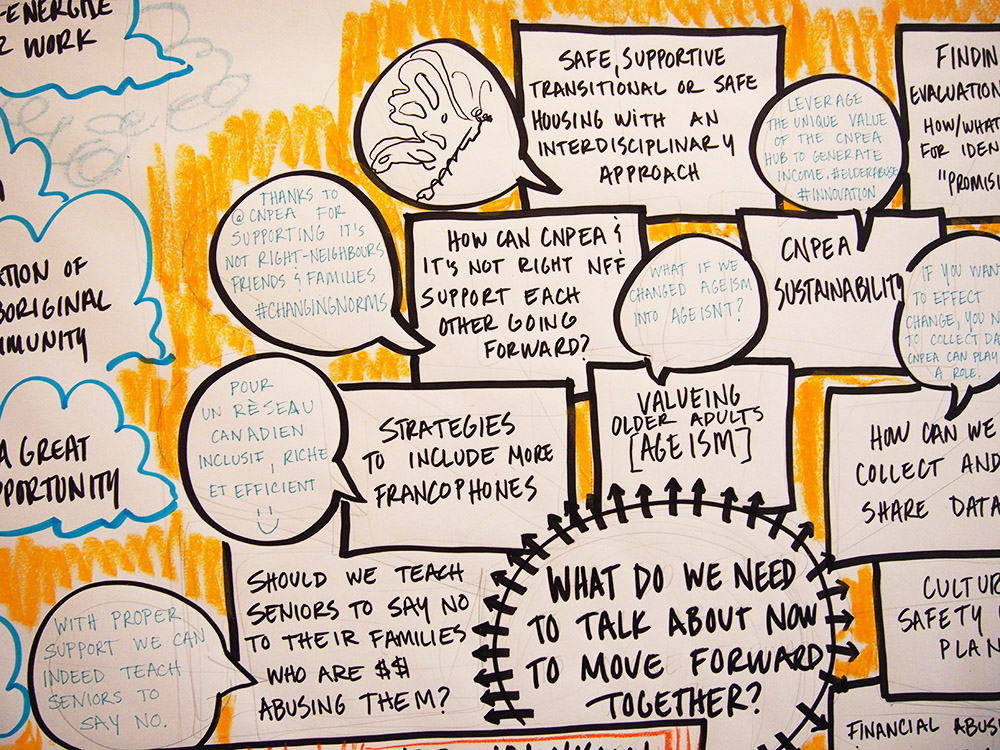 -ENERGIZE
WORK
SAFE, SUPPORTIVE
TRANSITIONAL OR SAFE
HOUSING WITH AN
INTERDISCIPLINARY
APPROACH
LEVERAGE
THE UNIQUE VALUE
OF THE CNPEA
HUB TO GENERATE
INCOME. #ELDERABUSE
#INNOVATION
FINDIN
EVALUATION
HOW/WHAT
FOR IDEN
"PROMISI
THANKS TO
@CNPEA FOR
SUPPORTING IT'S
NOT RIGHT-NEIGHBOURS
FRIENDS & FAMILIES
#CHANGINGNORMS
HOW CAN CNPEA &
IT'S NOT RIGHT NFF
SUPPORT EACH
OTHER GOING
FORWARD?
WHAT IF WE
CHANGED AGEISM
INTO AGEISNT?
CNPEA
SUSTAINABILITY
IF YOU WANT
TO EFFECT
CHANGE, YOU N
TO COLLECT DA
CNPEA CAN PLAY
A ROLE.
TION OF
BORIGINAL
MMUNITY
POUR
UN RÈSEAU
CANADIEN
INCLUSIF, RICHE
ET EFFICIENT
STRATEGIES
TO INCLUDE MORE
FRANCOPHONES
VALUEING
OLDER ADULTS
[AGEISM]
HOW CAN WE
COLLECT AND
SHARE DATA
A GREAT
PPORTUNITY
WITH PROPER
SUPPORT WE CAN
INDEED TEACH
SENIORS TO
SAY NO.
SHOULD WE TEACH
SENIORS TO SAY NO
TO THEIR FAMILIES
WHO ARE $$
ABUSING THEM?
WHAT DO WE NEED
TO TALK ABOUT NOW
TO MOVE FORWARD
TOGETHER?
CULTUR
SAFETY
PLAN
FINANCIAL ABUS